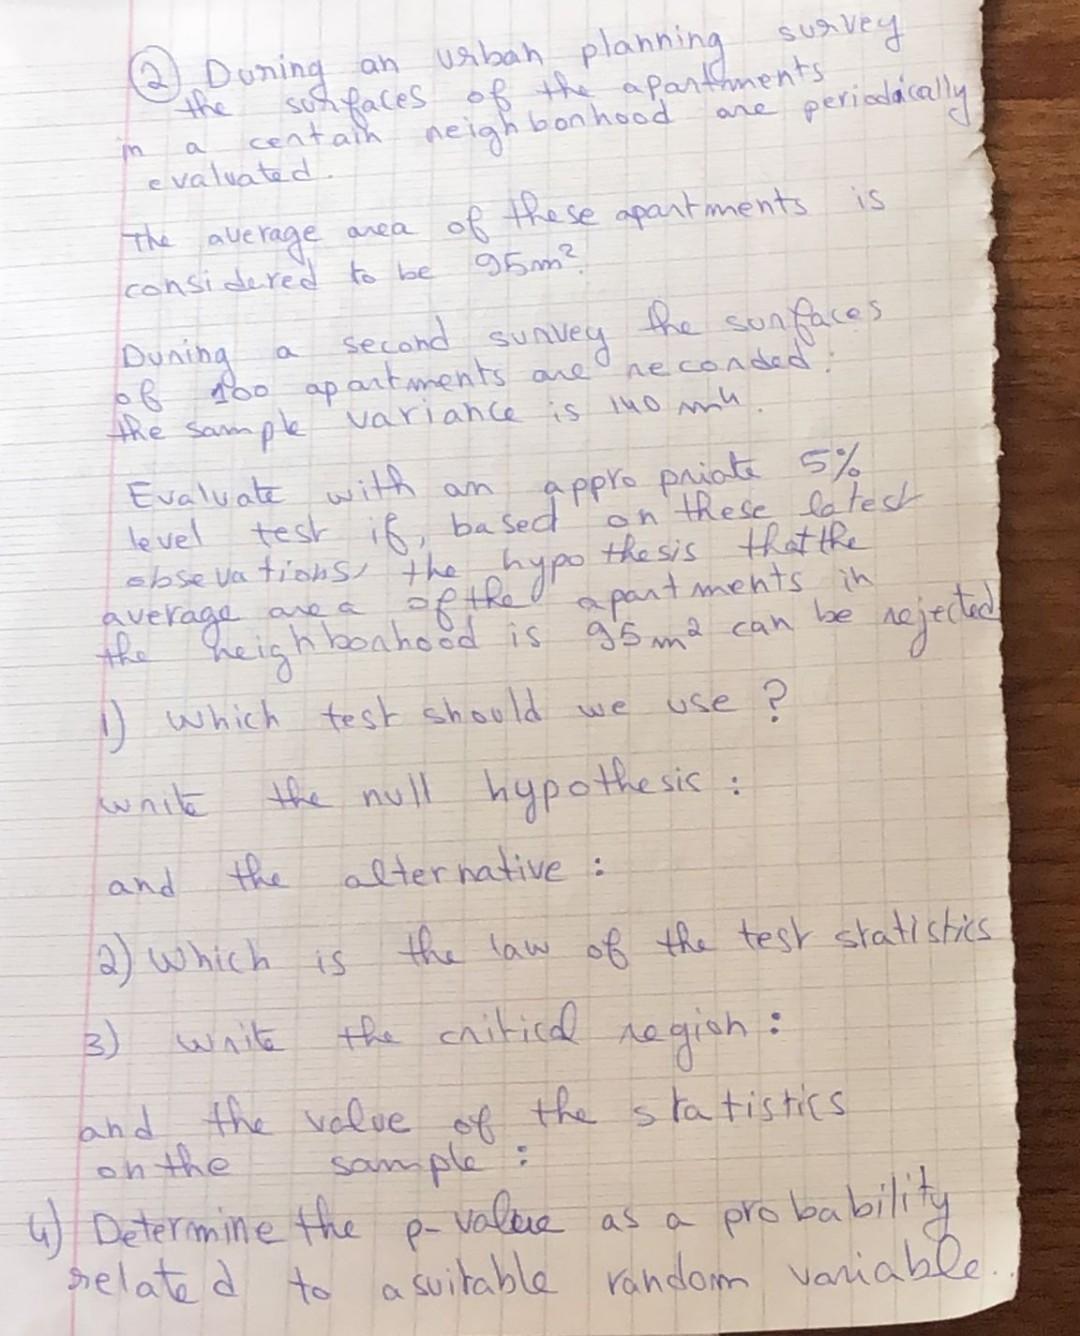 ② During an urban planning survey
the surfaces of the apartments
in a certain neighborhood are periodically
evaluated.
The average area of these apartments is
considered to be 95m².
During a second survey the surfaces
of 100 apartments are recorded:
the sample variance is 140 m⁴.
Evaluate with an appropriate 5%
level test if, based on these latest
obsevations, the hypothesis that the
average area of the apartments in
the neighborhood is 95m² can be rejected
1) which test should we use ?
write the null hypothesis :
and the alternative :
2) Which is the law of the test statistics
3) write the critical region :
and the value of the statistics
on the sample :
4) Determine the p-value as a probability
related to a suitable random variable.